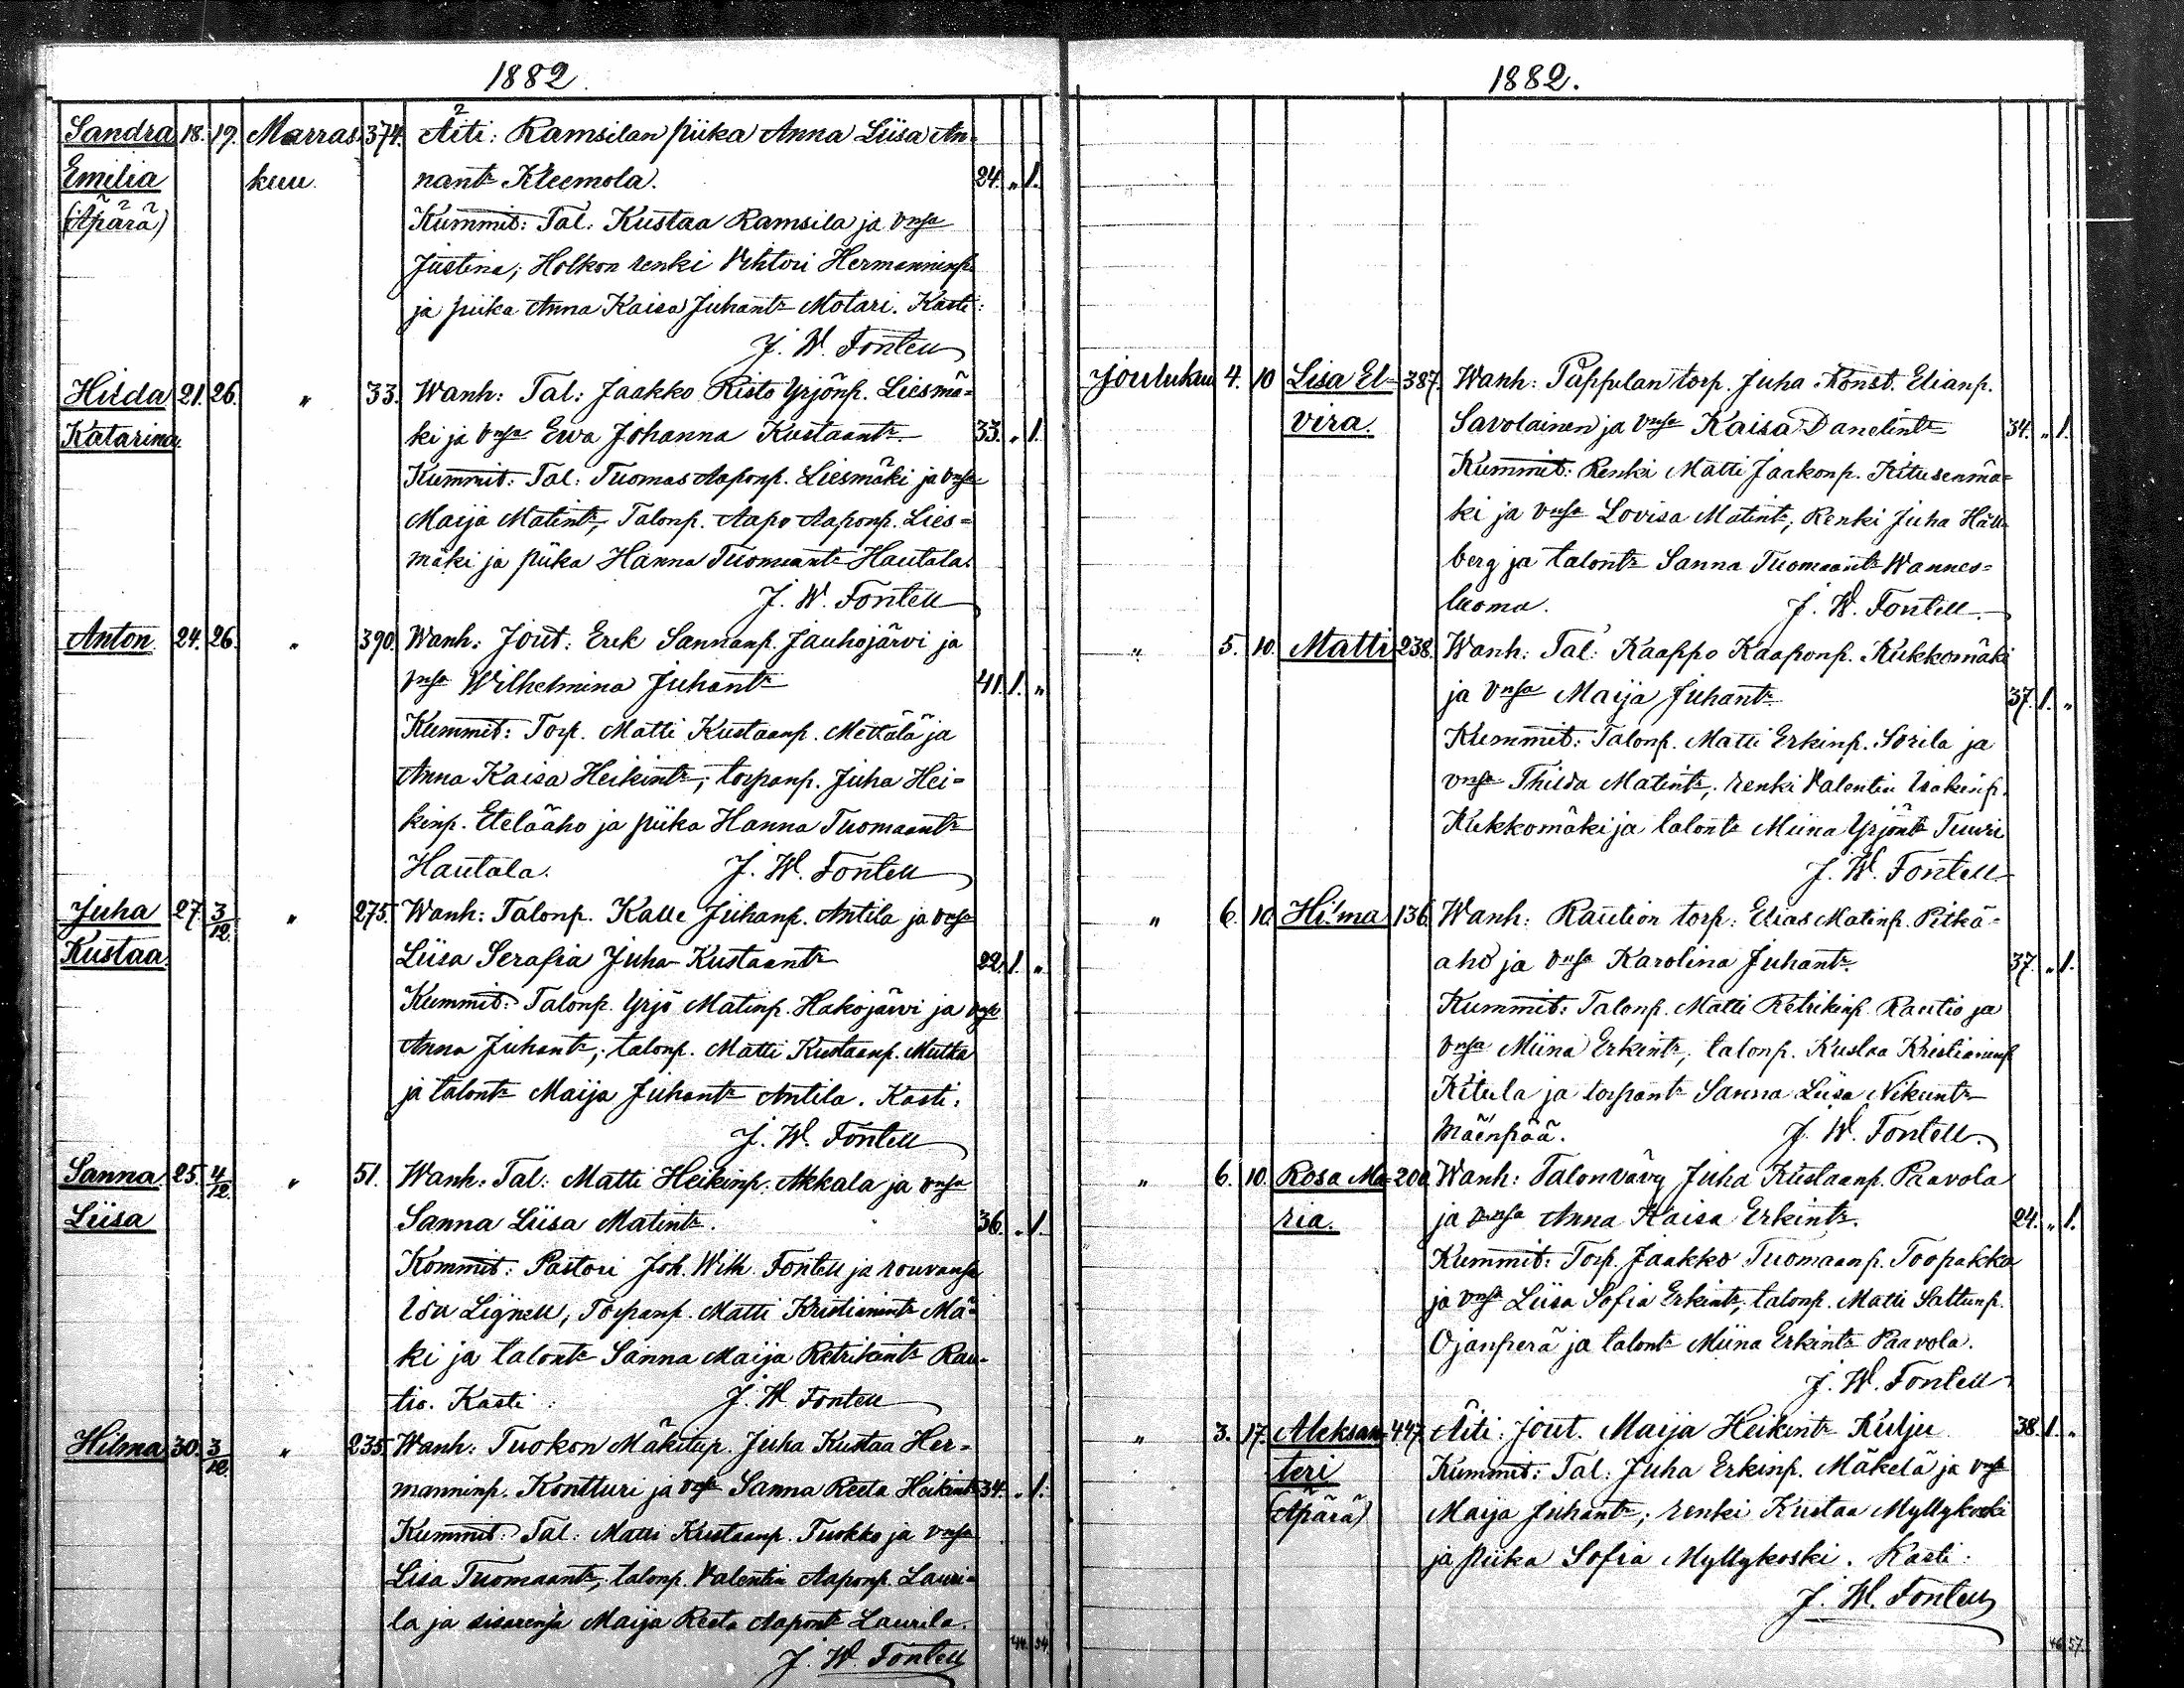 1882.
Sandra 18. 19. Marras- 374. Äiti: Ramsilan piika Anna Liisa An-
Emilia kuu. nantr Kleemola. 24. " 1.
(Äpärä) Kummit: Tal. Kustaa Ramsila ja vnsa
Justina; Holkon renki Vihtori Hermanninp.
ja piika Anna Kaisa Juhantr Motari. Kasti:
J. W. Fontell
Hilda 21. 26. " 33. Wanh: Tal: Jaakko Risto Yrjönp. Liesmä=
Katarina. ki ja vnsa Ewa Johanna Kustaantr 33. " 1.
Kummit: Tal: Tuomas Aaponp. Liesmäki ja vnsa
Maija Matintr, Talonp. Aapo Aaponp. Lies=
mäki ja piika Hanna Tuomaantr Hautala.
J. W. Fontell
Anton 24. 26. " 390. Wanh: Jout: Erik Sannanp. Jauhojärvi ja
vnsa Wilhelmina Juhantr 41. 1. "
Kummit: Torp. Matti Kustaanp. Mettälä ja
Anna Kaisa Heikintr; torpanp. Juha Hei=
kinp. Eteläaho ja piika Hanna Tuomaantr
Hautala. J. W. Fontell
Juha 27. 3/12. " 275. Wanh: Talonp. Kalle Juhanp. Antila ja vnsa
Kustaa. Liisa Serafia Juha-Kustaantr 22. 1. "
Kummit: Talonp. Yrjö Matinp. Hakojärvi ja vnsa
Anna Juhantr; talonp. Matti Kustaanp. Mutka
ja talontr Maija Juhantr Antila. Kasti:
J. W. Fontell
Sanna 25. 4/12. " 51. Wanh: Tal: Matti Heikinp. Akkala ja vnsa
Liisa Sanna Liisa Matintr. 36. " 1.
Kommit: Pastori Joh. Wilh. Fontell ja rouvansa
Ida Lignell, Torpanp. Matti Kristianintr Mä=
ki ja talontr Sanna Maija Retrikintr Rau-
tio. Kasti: J. W. Fontell
Hilma 30. 3/12. " 235. Wanh: Tuokon Mäkitup. Juha Kustaa Her=
manninp. Kontturi ja vnsa Sanna Reeta Heikintr 34. " 1.
Kummit: Tal: Matti Kustaanp. Tuokko ja vnsa
Lisa Tuomaantr; talonp. Valentin Aaponp. Lauri=
la ja sisarensa Maija Reeta Aapontr Laurila.
J. W. Fontell
1882.
Joulukuu 4. 10 Lisa El- 387. Wanh: Pappilan torp. Juha Konst. Elianp.
vira. Savolainen ja vnsa Kaisa Danelintr 34. " 1.
Kummit: Renki Matti Jaakonp. Kitusenmä=
ki ja vnsa Lovisa Matintr, Renki Juha Häll-
berg ja talontr Sanna Tuomaantr Wannes=
luoma. J. W. Fontell
" 5. 10. Matti 238. Wanh: Tal: Kaappo Kaaponp. Kukkomäki
ja vnsa Maija Juhantr. 37. 1. "
Kummit: Talonp. Matti Erkinp. Sorila ja
vnsa Thilda Matintr; renki Valentin Isakinp.
Kukkomäki ja talontr Miina Yrjöntr Tuuri
J. W. Fontell
" 6. 10. Hilma 136. Wanh: Raution torp: Elias Matinp. Pitkä=
aho ja vnsa Karolina Juhantr. 37. " 1.
Kummit: Talonp. Matti Retrikinp. Rautio ja
vnsa Miina Erkintr; talonp. Kustaa Kristianinp
Kitula ja torpantr Sanna Liisa Nikuntr
Mäenpää. J. W. Fontell.
" 6. 10. Rosa Ma- 200. Wanh: Talonvävy Juha Kustaanp. Paavola
ria. ja vnsa Anna Kaisa Erkintr. 24. " 1.
Kummit: Torp. Jaakko Tuomaanp. Toopakka
ja vnsa Liisa Sofia Erkintr, talonp. Matti Saltunp.
Ojanperä ja talontr Miina Erkintr Paavola.
J. W. Fontell
" 3. 17. Aleksan- 447. Äiti: Jout. Maija Heikintr Kulju 38. 1. "
teri Kummit: Tal: Juha Erkinp. Mäkelä ja vnsa
(Äpärä) Maija Juhantr; renki Kustaa Myllykoski
ja piika Sofia Myllykoski. Kasti:
J. W. Fontell
46 57